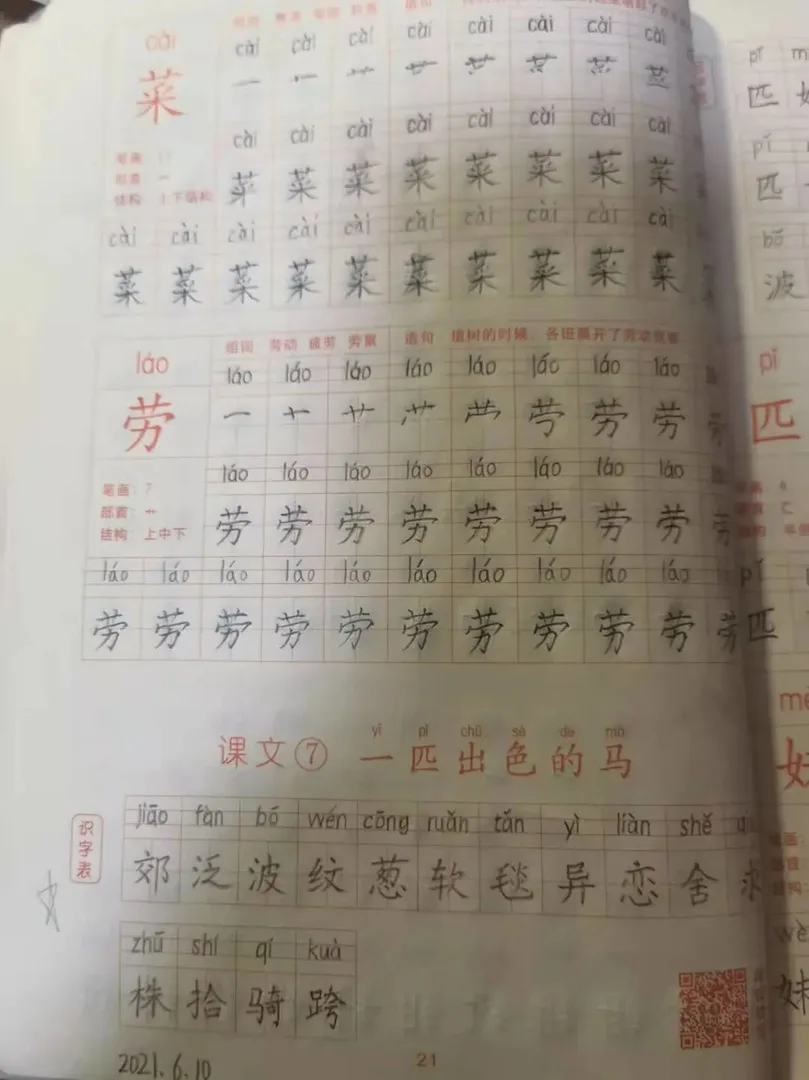 cài cài cài cài cài cài cài cài cài
菜 一
cài cài cài cài cài cài cài cài
笔画：11
部首：艹
结构：上下结构
菜 菜 菜 菜 菜 菜 菜 菜
cài cài cài cài cài cài cài cài cài cài
菜 菜 菜 菜 菜 菜 菜 菜 菜 菜
组词 劳动 疲劳 劳累 造句 植树的时候，各班展开了劳动竞赛
láo láo láo láo láo láo láo láo láo
劳 一 十 艹 劳 劳 劳
láo láo láo láo láo láo láo láo
笔画：7
部首：艹
结构：上中下
劳 劳 劳 劳 劳 劳 劳 劳 劳
láo láo láo láo láo láo láo láo láo láo
劳 劳 劳 劳 劳 劳 劳 劳 劳 劳 劳
yì pǐ chū sè de mǎ
课文⑦ 一匹出色的马
识字表
jiāo fàn bō wén cōng ruǎn tǎn yì liàn shě
郊 泛 波 纹 葱 软 毯 异 恋 舍 求
zhū shí qí kuà
株 拾 骑 跨
2021.6.10
21
pǐ
匹
pǐ
匹
bō
波
pǐ
匹
pǐ
匹